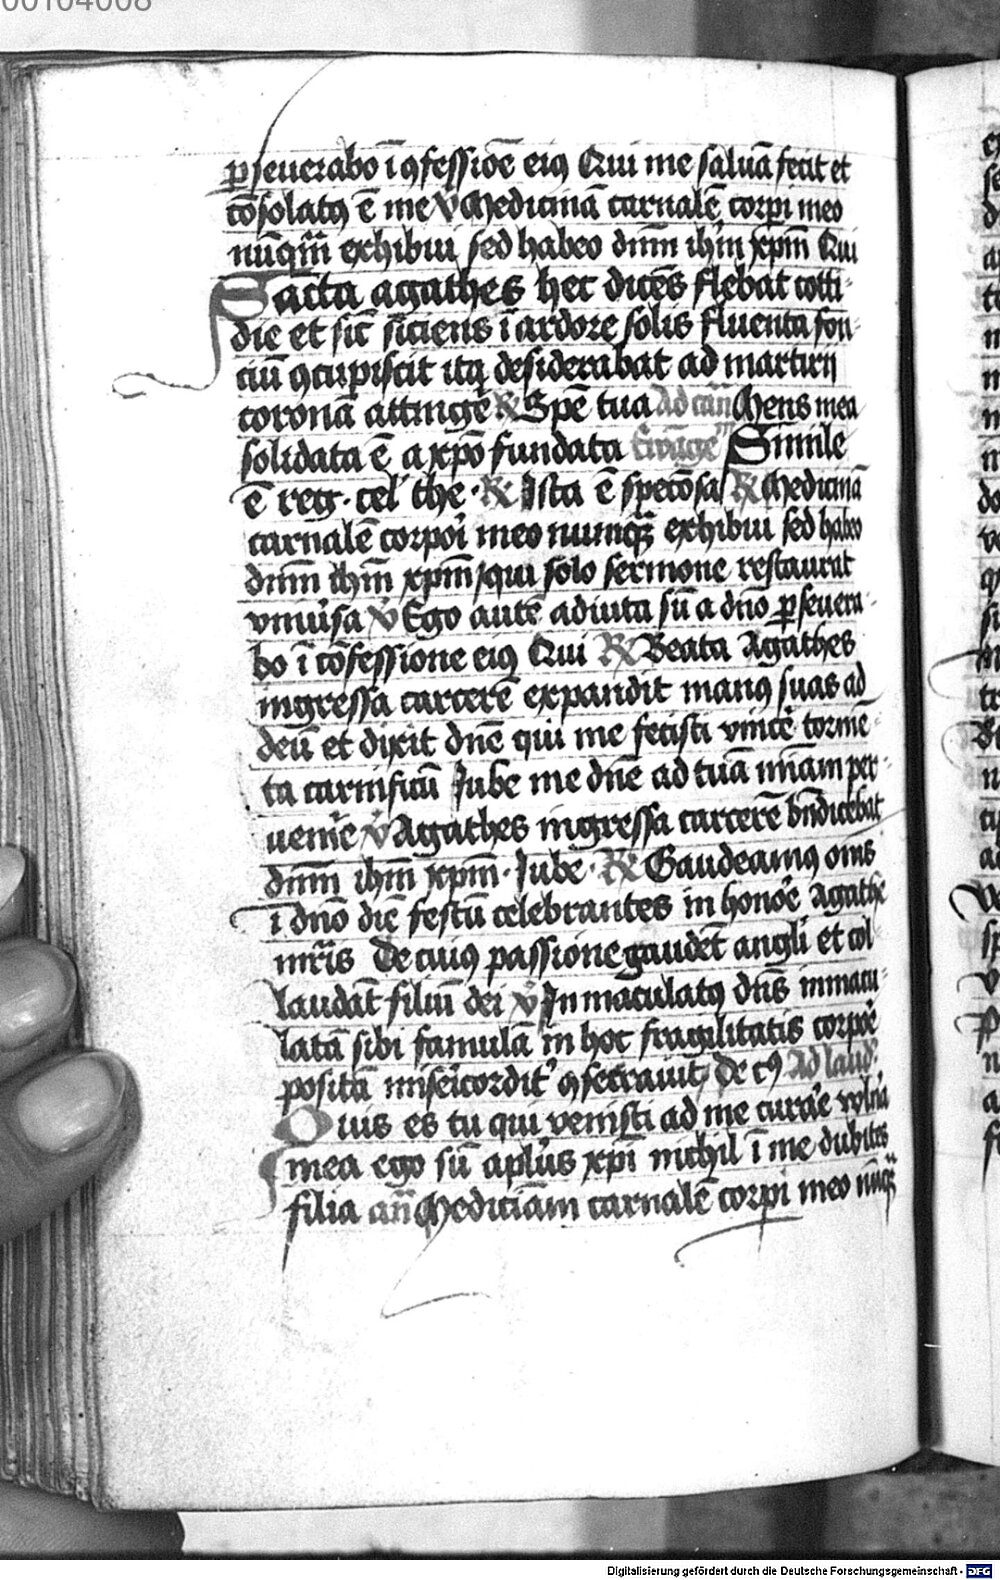 00104008
ꝑseuerabo ī ꝯfessiōe eiꝰ Qui me saluā fecit et
cōsolatꝰ ē me ℣ Medicinā carnalē corpi meo
nūqm̄ exhibui sed habeo dnm̄ ihm̄ xpm̄ Qui
Sācta agathes hec dicēs flebat cotti-
die et sic̄ siciens ī ardore solis fluenta fon-
ciū ꝯcupiscit itqꝫ desiderabat ad martirii
coronā attingē ℟ Spē tua Ad can̄ Mens mea
solidata ē a xpō fundata Ewāge Simile
ē reg· cel the · ℟ Ista ē specōsa ℟ Medicinā
carnalē corpori meo numqꝫ exhibui sed habeo
dnm̄ ihm̄ xpm̄ qui solo sermone restaurat
vniu̾sa ℣ Ego autē adiuta sū a dn̄o ꝑseuera-
bo ī cōfessione eiꝰ Qui ℟ Beata Agathes
ingressa carcerē expandit manꝰ suas ad
deū et dixit dn̄e qui me fecisti vince̾ tormē-
ta carnificū Jube me dn̄e ad tuā mīam per-
uenie̾ ℣ Agathes ingressa carcerē bn̄dicebat
dnm̄ ihm̄ xpm̄ · Jube · ℟ Gaudeamꝰ oms
ī dn̄o diē festū celebrantes in honoe̾ Agathe
mr̄is De cuiꝰ passione gaudēt angli et col
laudāt filiū dei ℣ Inmaculatꝰ dn̄s inmacu-
latā sibi famulā in hoc fragilitatis corpoe̾
positā misericordit̾ ꝯsecrauit De cꝰ Ad laud̾
Quis es tu qui venisti ad me curae̾ vuln̾a
mea ego sū aplūs xpī nichil ī me dubites
filia an̄ Mediciām carnalē corpi meo nūqꝫ
Digitalisierung gefördert durch die Deutsche Forschungsgemeinschaft - DFG